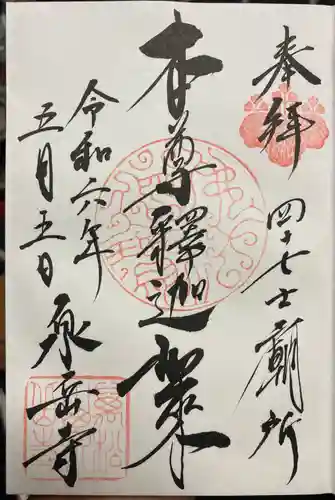 奉拝
四十七士廟所
本尊釋迦牟
令和六年
五月五日
泉岳寺